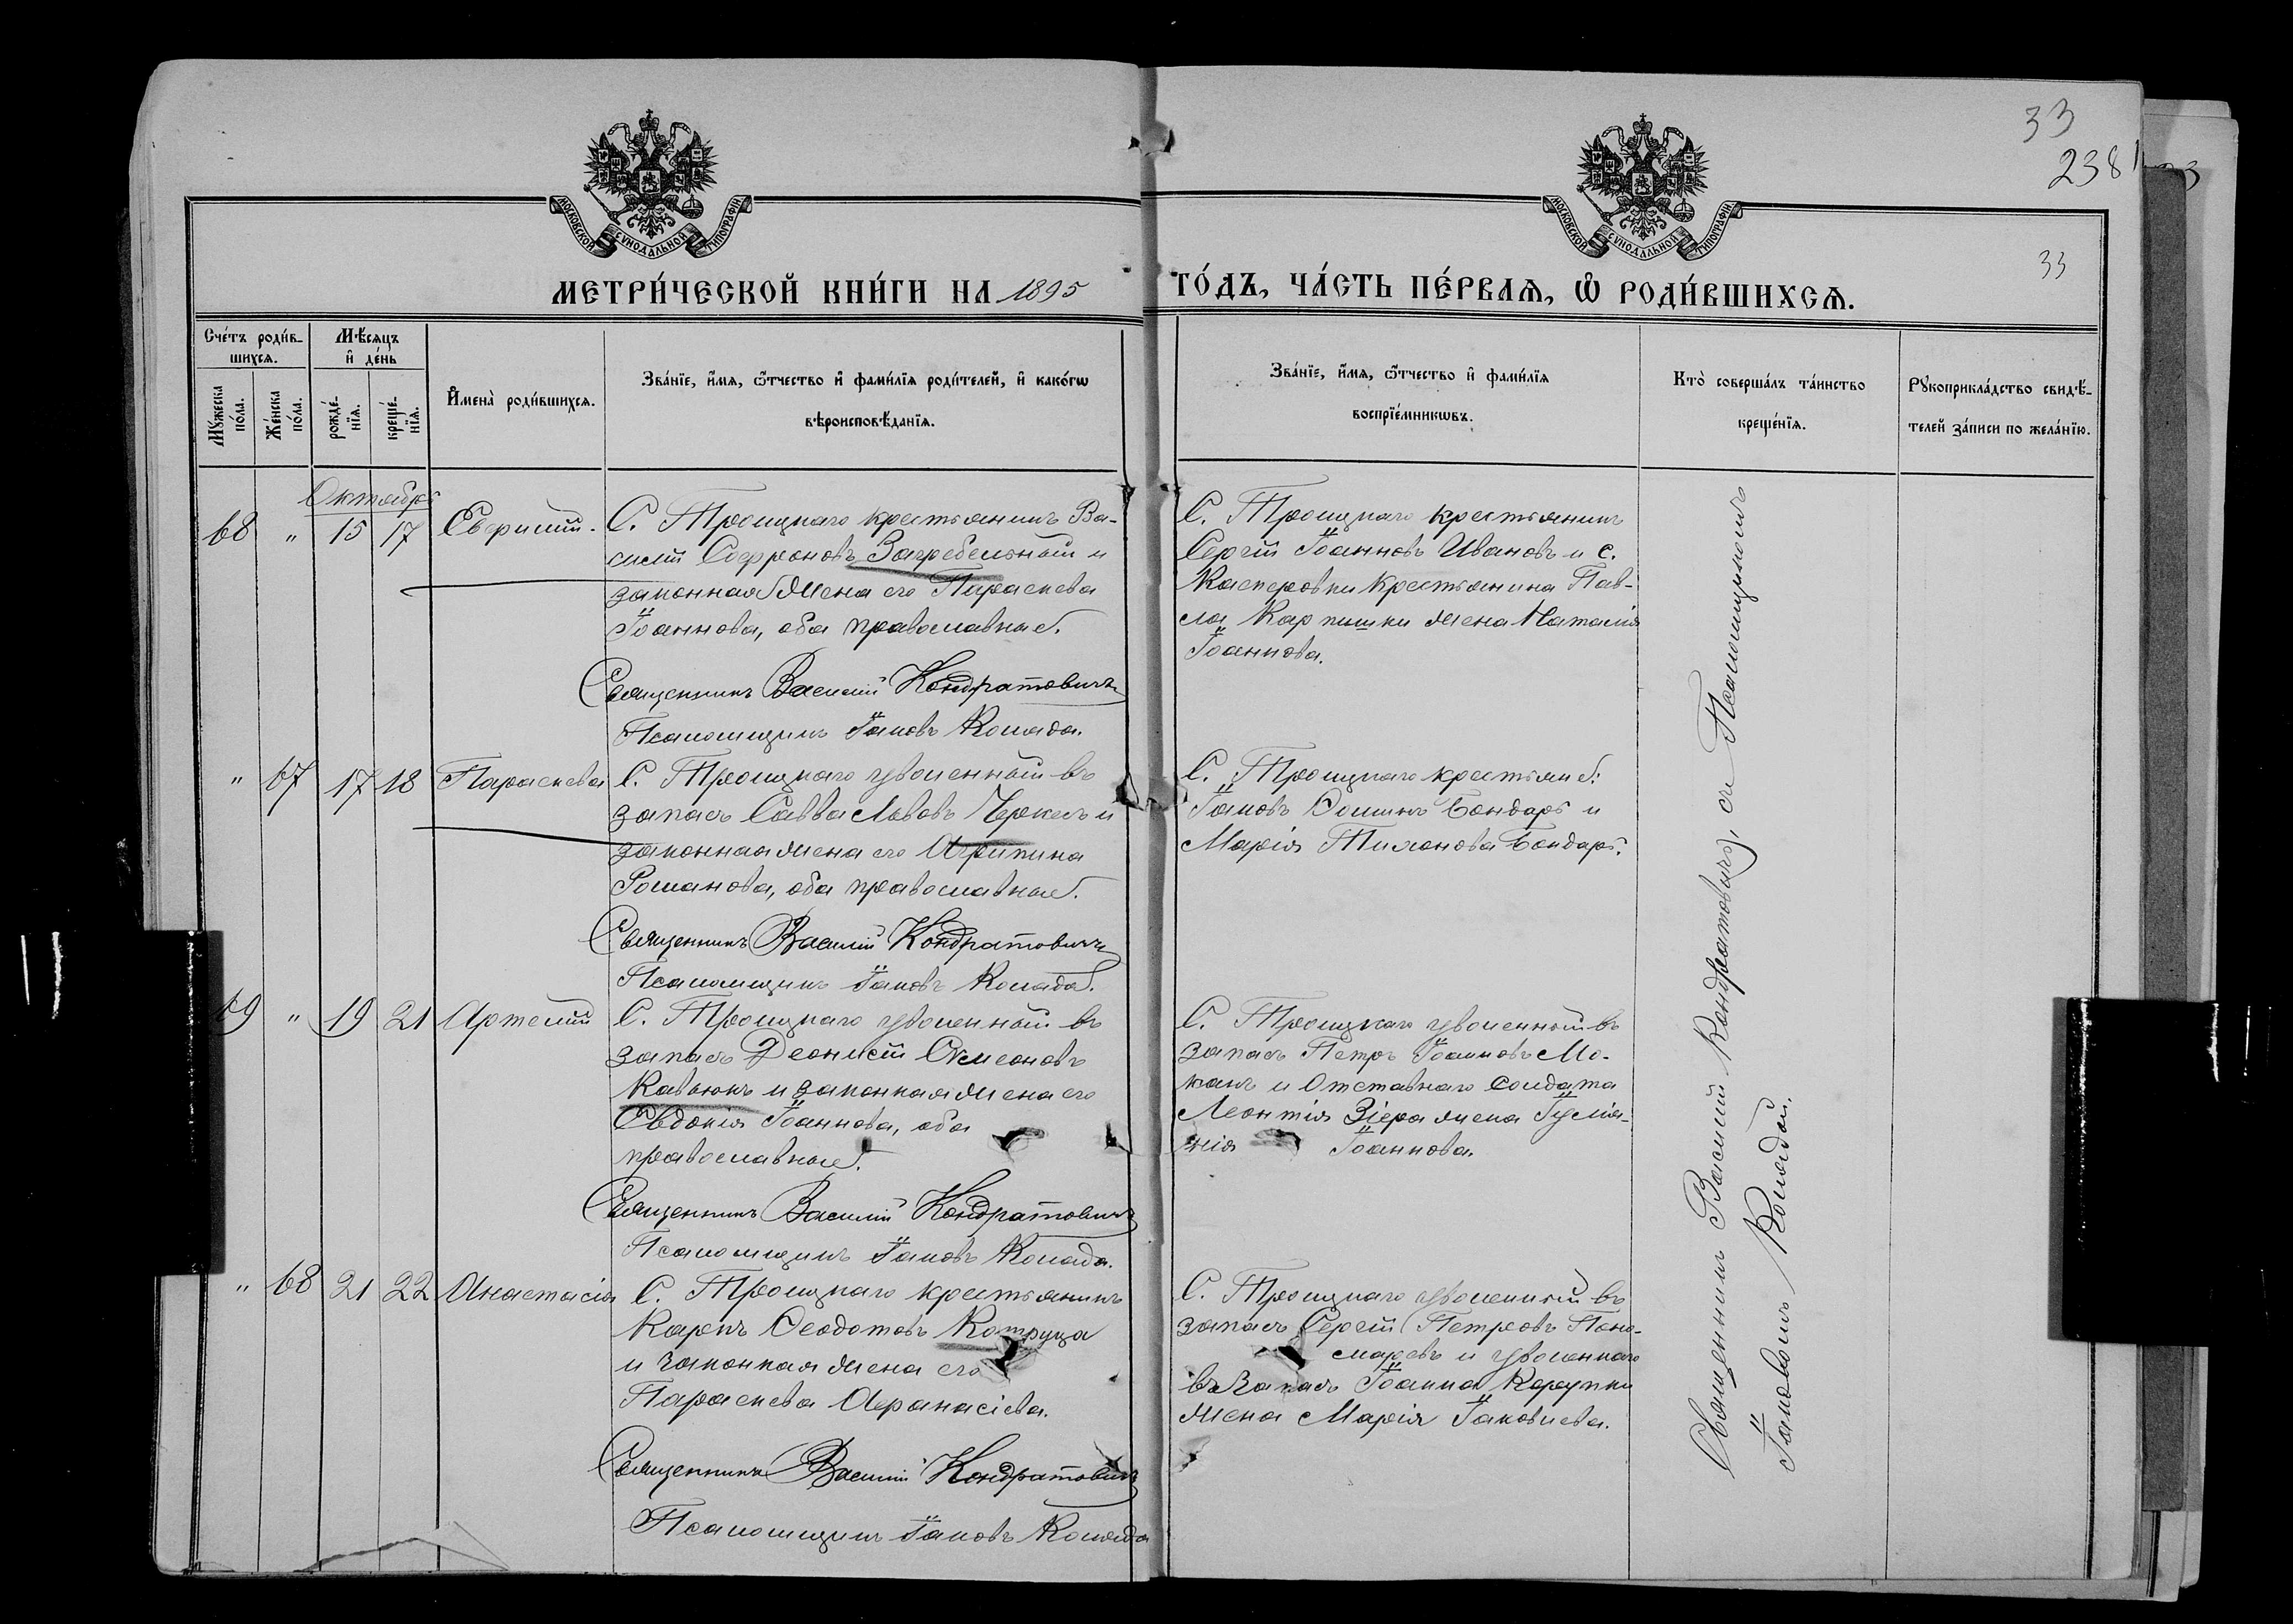 33
238
33
МОСКОВСКОЙ СѴНОДАЛЬНОЙ ТИПОГРАФІИ
МОСКОВСКОЙ СѴНОДАЛЬНОЙ ТИПОГРАФІИ
МЕТРИ́ЧЕСКОЙ КНИ́ГИ НА 1895
ГО́ДЪ, ЧА́СТЬ ПЕ́РВАѦ, Ѡ РОДИ́ВШИХСѦ.
Сче́тъ роди́в-
шихсѧ.
Мѣ́сѧцъ
и҆ де́нь
Мꙋ́жеска
по́ла.
Же́нска
по́ла.
рожде́-
нїѧ.
креще́-
нїѧ.
И҆мена̀ роди́вшихсѧ.
Зва́нїе, и҆́мѧ, ѻ҆́тчество и҆ фами́лїѧ роди́телей, и҆ како́гѡ
вѣроисповѣ́данїѧ.
Зва́нїе, и҆́мѧ, ѻ҆́тчество и҆ фами́лїѧ
воспрїе́мникѡвъ.
Кто̀ соверша́лъ та́инство
креще́нїѧ.
Рꙋкоприкла́дство свидѣ́-
телей за́писи по жела́нїю.
Октябрь
68 " 15 17 Евфимій.
С. Троицкаго крестьянинъ Ва-
силій Софроновъ Загребельный и
законная жена его Параскева
Іоаннова, оба православные.
Священникъ Василій Кондратовичъ
Псаломщикъ Іаковъ Комада.
С. Троицкаго крестьянинъ
Сергій Іоанновъ Ивановъ и с.
Касперовки крестьянина Пав-
ла Карпишки жена Наталія
Іоаннова.
" 67 17 18 Параскева
С. Троицкаго уволенный въ
запасъ Савва Львовъ Черкесъ и
законная жена его Агрипина
Романова, оба православные.
Священникъ Василій Кондратовичъ
Псаломщикъ Іаковъ Комада.
С. Троицкаго крестьяне:
Іаковъ Ѳоминъ Бондарь и
Марія Тихонова Бондарь.
69 " 19 21 Артемій
С. Троицкаго уволенный въ
запасъ Деонисій Симеоновъ
Кавьюкъ и законная жена его
Евдокія Іоаннова, оба
православные.
Священникъ Василій Кондратовичъ
Псаломщикъ Іаковъ Комада.
С. Троицкаго уволенный въ
запасъ Петръ Іоанновъ Мо-
канъ и отставнаго солдата
Леонтія Зіера жена Іуліа-
нія Іоаннова.
" 68 21 22 Анастасія
С. Троицкаго крестьянинъ
Карпъ Ѳеодотовъ Катруца
и законная жена его
Параскева Афанасіева.
Священникъ Василій Кондратовичъ
Псаломщикъ Іаковъ Комада
С. Троицкаго уволенный въ
запасъ Сергій Петровъ Поно-
маревъ и уволеннаго
въ запасъ Іоанна Коружки
жена Марія Іаковлева.
Священникъ Василій Кондратовичъ, съ Псаломщикомъ
Іаковомъ Комадой.